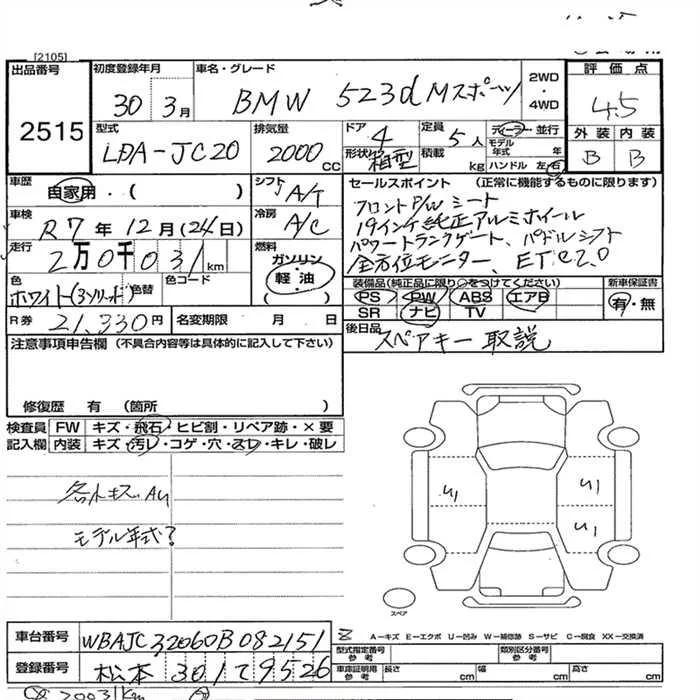 [2105]
出品番号
2515
初度登録年月
30年 3月
車名・グレード
BMW 523d Mスポーツ
2WD
・
4WD
評価点
4.5
型式
LDA-JC20
排気量
2000 CC
ドア
4
形状
箱型
定員
5人
積載
kg
ディーラー・並行
モデル
年式 年
ハンドル 左・右
外装 内装
B B
車歴
自家用・( )
シフト
A/T
車検
R7年 12月(24日)
冷房
A/C
走行
2万0千031km
燃料
ガソリン
軽・油
( )
色
ホワイト(3ソリッド)
色替
色コード
R券
21,330円
名変期限 月 日
セールスポイント (正常に機能するものに限ります)
フロントP/Wシート
19インチ純正アルミホイール
パワートランクゲート、パドルシフト
全方位モニター、ETC2.0
装備品(純正品に限り○をつけてください)
新車保証書
PS PW ABS エアB
有・無
SR ナビ TV
後日品
スペアキー 取説
注意事項申告欄(不具合内容等は具体的に記入して下さい)
修復歴 有 (箇所 )
検査員
記入欄
FW キズ・飛石・ヒビ割・リペア跡・×要
内装 キズ・汚レ・コゲ・穴・スレ・キレ・破レ
各小キズ、AU
モデル年式?
U1
U1
U1
スペア
A-キズ E-エクボ U-凹み W-補修跡 S-サビ C-腐食 XX-交換済
車台番号
WBAJC32060B082151
登録番号
松本 301 て 9526
型式指定番号
参考
類別区分番号
参考
車庫証明用
参考
長さ cm
幅 cm
高さ cm
20031km